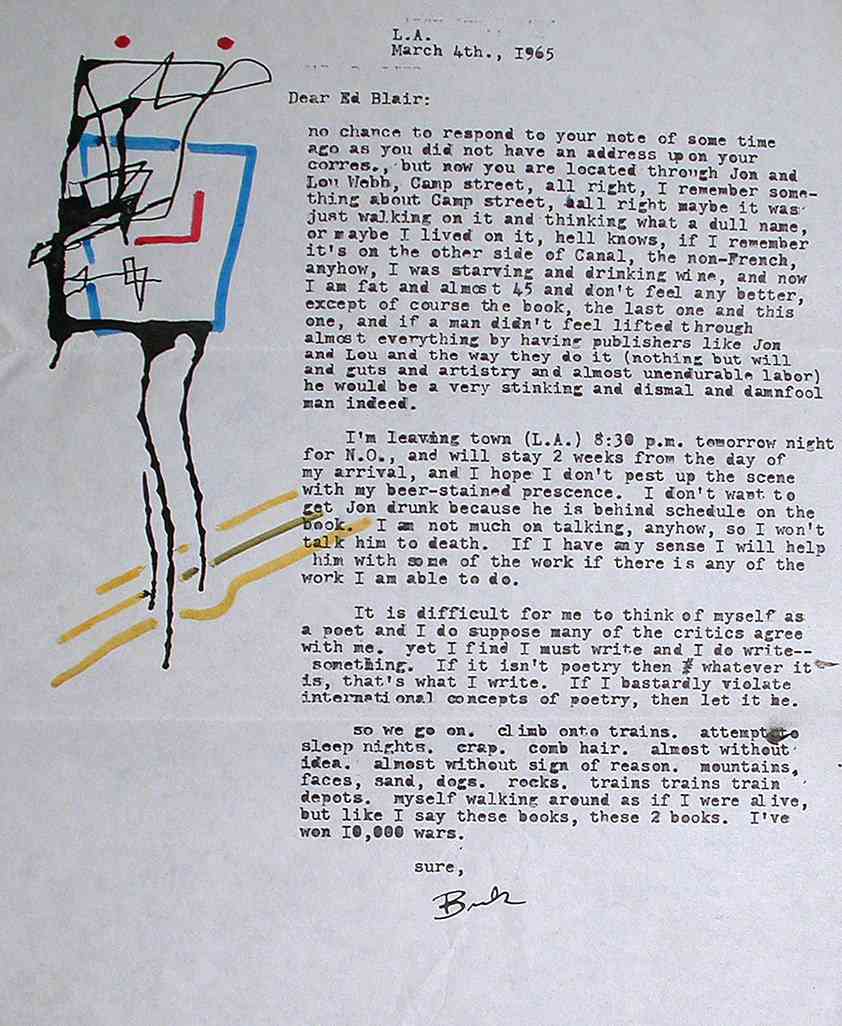 L.A.
March 4th., I965
Dear Ed Blair:
no chance to respond to your note of some time
ago as you did not have an address upon your
corres., but now you are located through Jon and
Lou Webb, Camp street, all right, I remember some-
thing about Camp street, all right maybe it was
just walking on it and thinking what a dull name,
or maybe I lived on it, hell knows, if I remember
it's on the other side of Canal, the non-French,
anyhow, I was starving and drinking wine, and now
I am fat and almost 45 and don't feel any better,
except of course the book, the last one and this
one, and if a man didn't feel lifted through
almost everything by having publishers like Jon
and Lou and the way they do it (nothing but will
and guts and artistry and almost unendurable labor)
he would be a very stinking and dismal and damnfool
man indeed.
I'm leaving town (L.A.) 8:30 p.m. tomorrow night
for N.O., and will stay 2 weeks from the day of
my arrival, and I hope I don't pest up the scene
with my beer-stained prescence. I don't want to
get Jon drunk because he is behind schedule on the
book. I am not much on talking, anyhow, so I won't
talk him to death. If I have any sense I will help
him with some of the work if there is any of the
work I am able to do.
It is difficult for me to think of myself as
a poet and I do suppose many of the critics agree
with me. yet I find I must write and I do write--
something. If it isn't poetry then whatever it
is, that's what I write. If I bastardly violate
international concepts of poetry, then let it be.
so we go on. climb onto trains. attempt to
sleep nights. crap. comb hair. almost without
idea. almost without sign of reason. mountains,
faces, sand, dogs. rocks. trains trains train
depots. myself walking around as if I were alive,
but like I say these books, these 2 books. I've
won I0,000 wars.
sure,
Buk